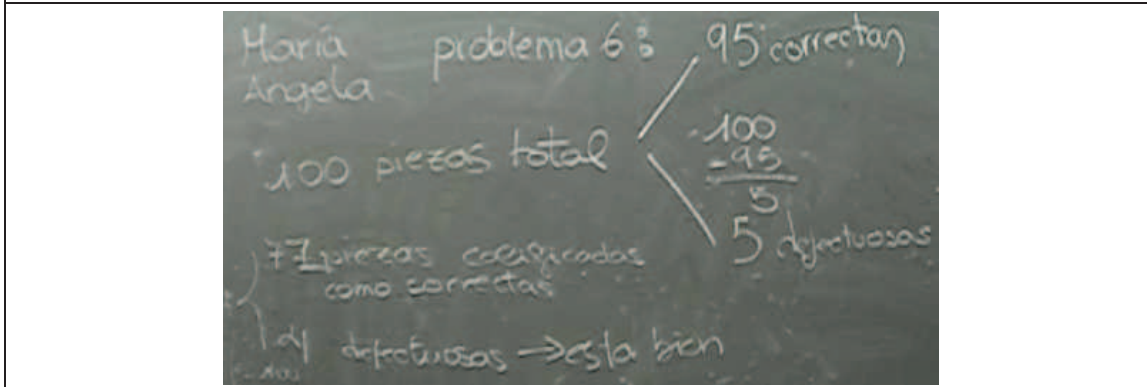 María problema 6: 95 correctas
Angela
100 piezas total
100
-95
5
5 defectuosas
77 piezas
como correctas
4 defectuosas → esta bien